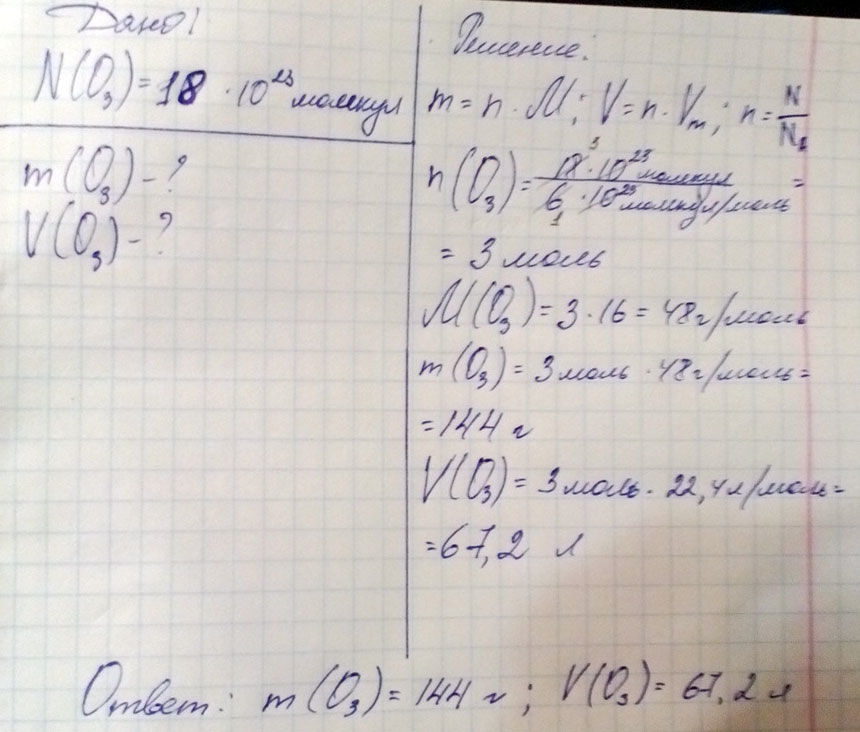 Дано!
N(O₃)=18 · 10²³ молекул
m(O₃) - ?
V(O₃) - ?
Решение:
m = n · M; V = n · Vₘ; n = N/N₁
n(O₃) = 18³·10²³ молекул / 6₁·10²³ молекул/моль =
= 3 моль
M(O₃) = 3 · 16 = 48 г/моль
m(O₃) = 3 моль · 48 г/моль =
= 144 г
V(O₃) = 3 моль · 22,4 л/моль =
= 67,2 л
Ответ: m(O₃) = 144 г ; V(O₃) = 67,2 л